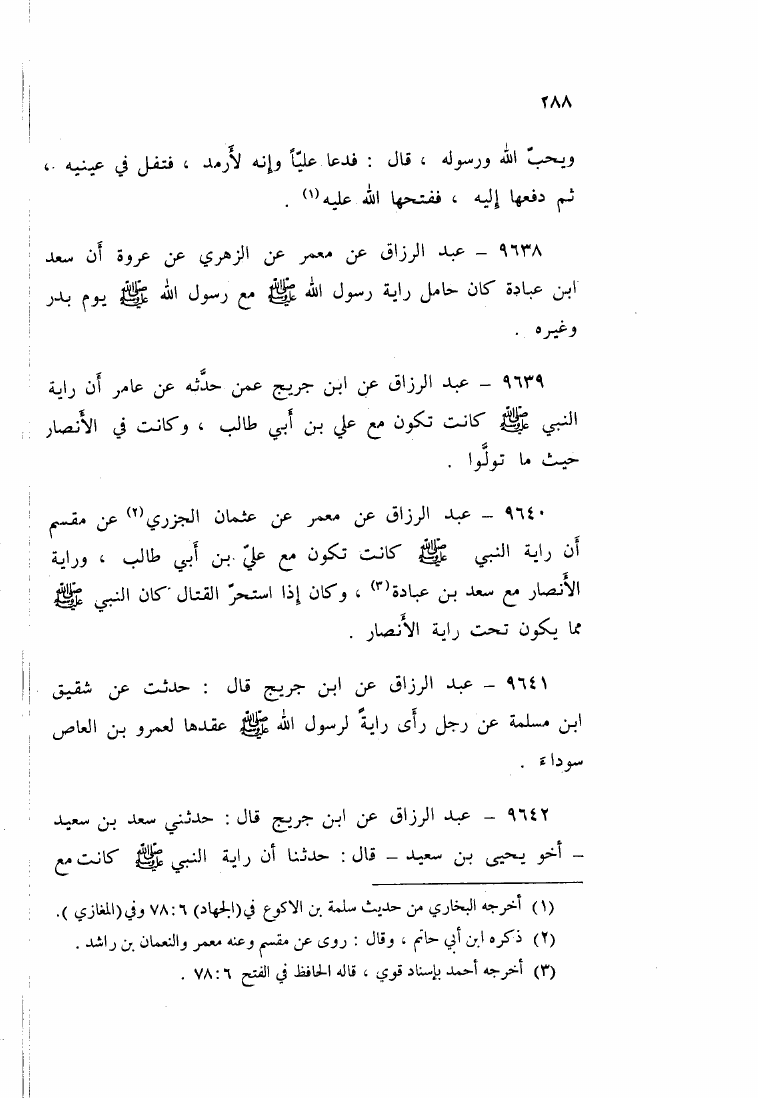 ٢٨٨
ويحبّ الله ورسوله ، قال : فدعا عليّاً وإنه لأَرمد ، فتفل في عينيه ،
ثم دفعها إليه ، ففتحها الله عليه(١) .
٩٦٣٨ – عبد الرزاق عن معمر عن الزهري عن عروة أَن سعد
ابن عبادة كان حامل راية رسول الله ﷺ مع رسول الله ﷺ يوم بدر
وغيره .
٩٦٣٩ – عبد الرزاق عن ابن جريج عمن حدَّثه عن عامر أَن راية
النبي ﷺ كانت تكون مع علي بن أَبي طالب ، وكانت في الأَنصار
حيث ما تولَّوا .
٩٦٤٠ – عبد الرزاق عن معمر عن عثمان الجزري(٢) عن مقسم
أَن راية النبي ﷺ كانت تكون مع عليّ بن أَبي طالب ، وراية
الأَنصار مع سعد بن عبادة(٣) ، وكان إذا استحرّ القتال كان النبي ﷺ
مما يكون تحت راية الأَنصار .
٩٦٤١ – عبد الرزاق عن ابن جريج قال : حدثت عن شقيق
ابن مسلمة عن رجل رأَى رايةً لرسول الله ﷺ عقدها لعمرو بن العاص
سوداءَ .
٩٦٤٢ – عبد الرزاق عن ابن جريج قال : حدثني سعد بن سعيد
– أَخو يحيى بن سعيد – قال : حدثنا أَن راية النبي ﷺ كانت مع
(١) أخرجه البخاري من حديث سلمة بن الاكوع في (الجهاد) ٦ : ٧٨ وفي (المغازي ).
(٢) ذكره ابن أبي حاتم ، وقال : روى عن مقسم وعنه معمر والنعمان بن راشد .
(٣) أخرجه أحمد بإسناد قوي ، قاله الحافظ في الفتح ٦ : ٧٨ .